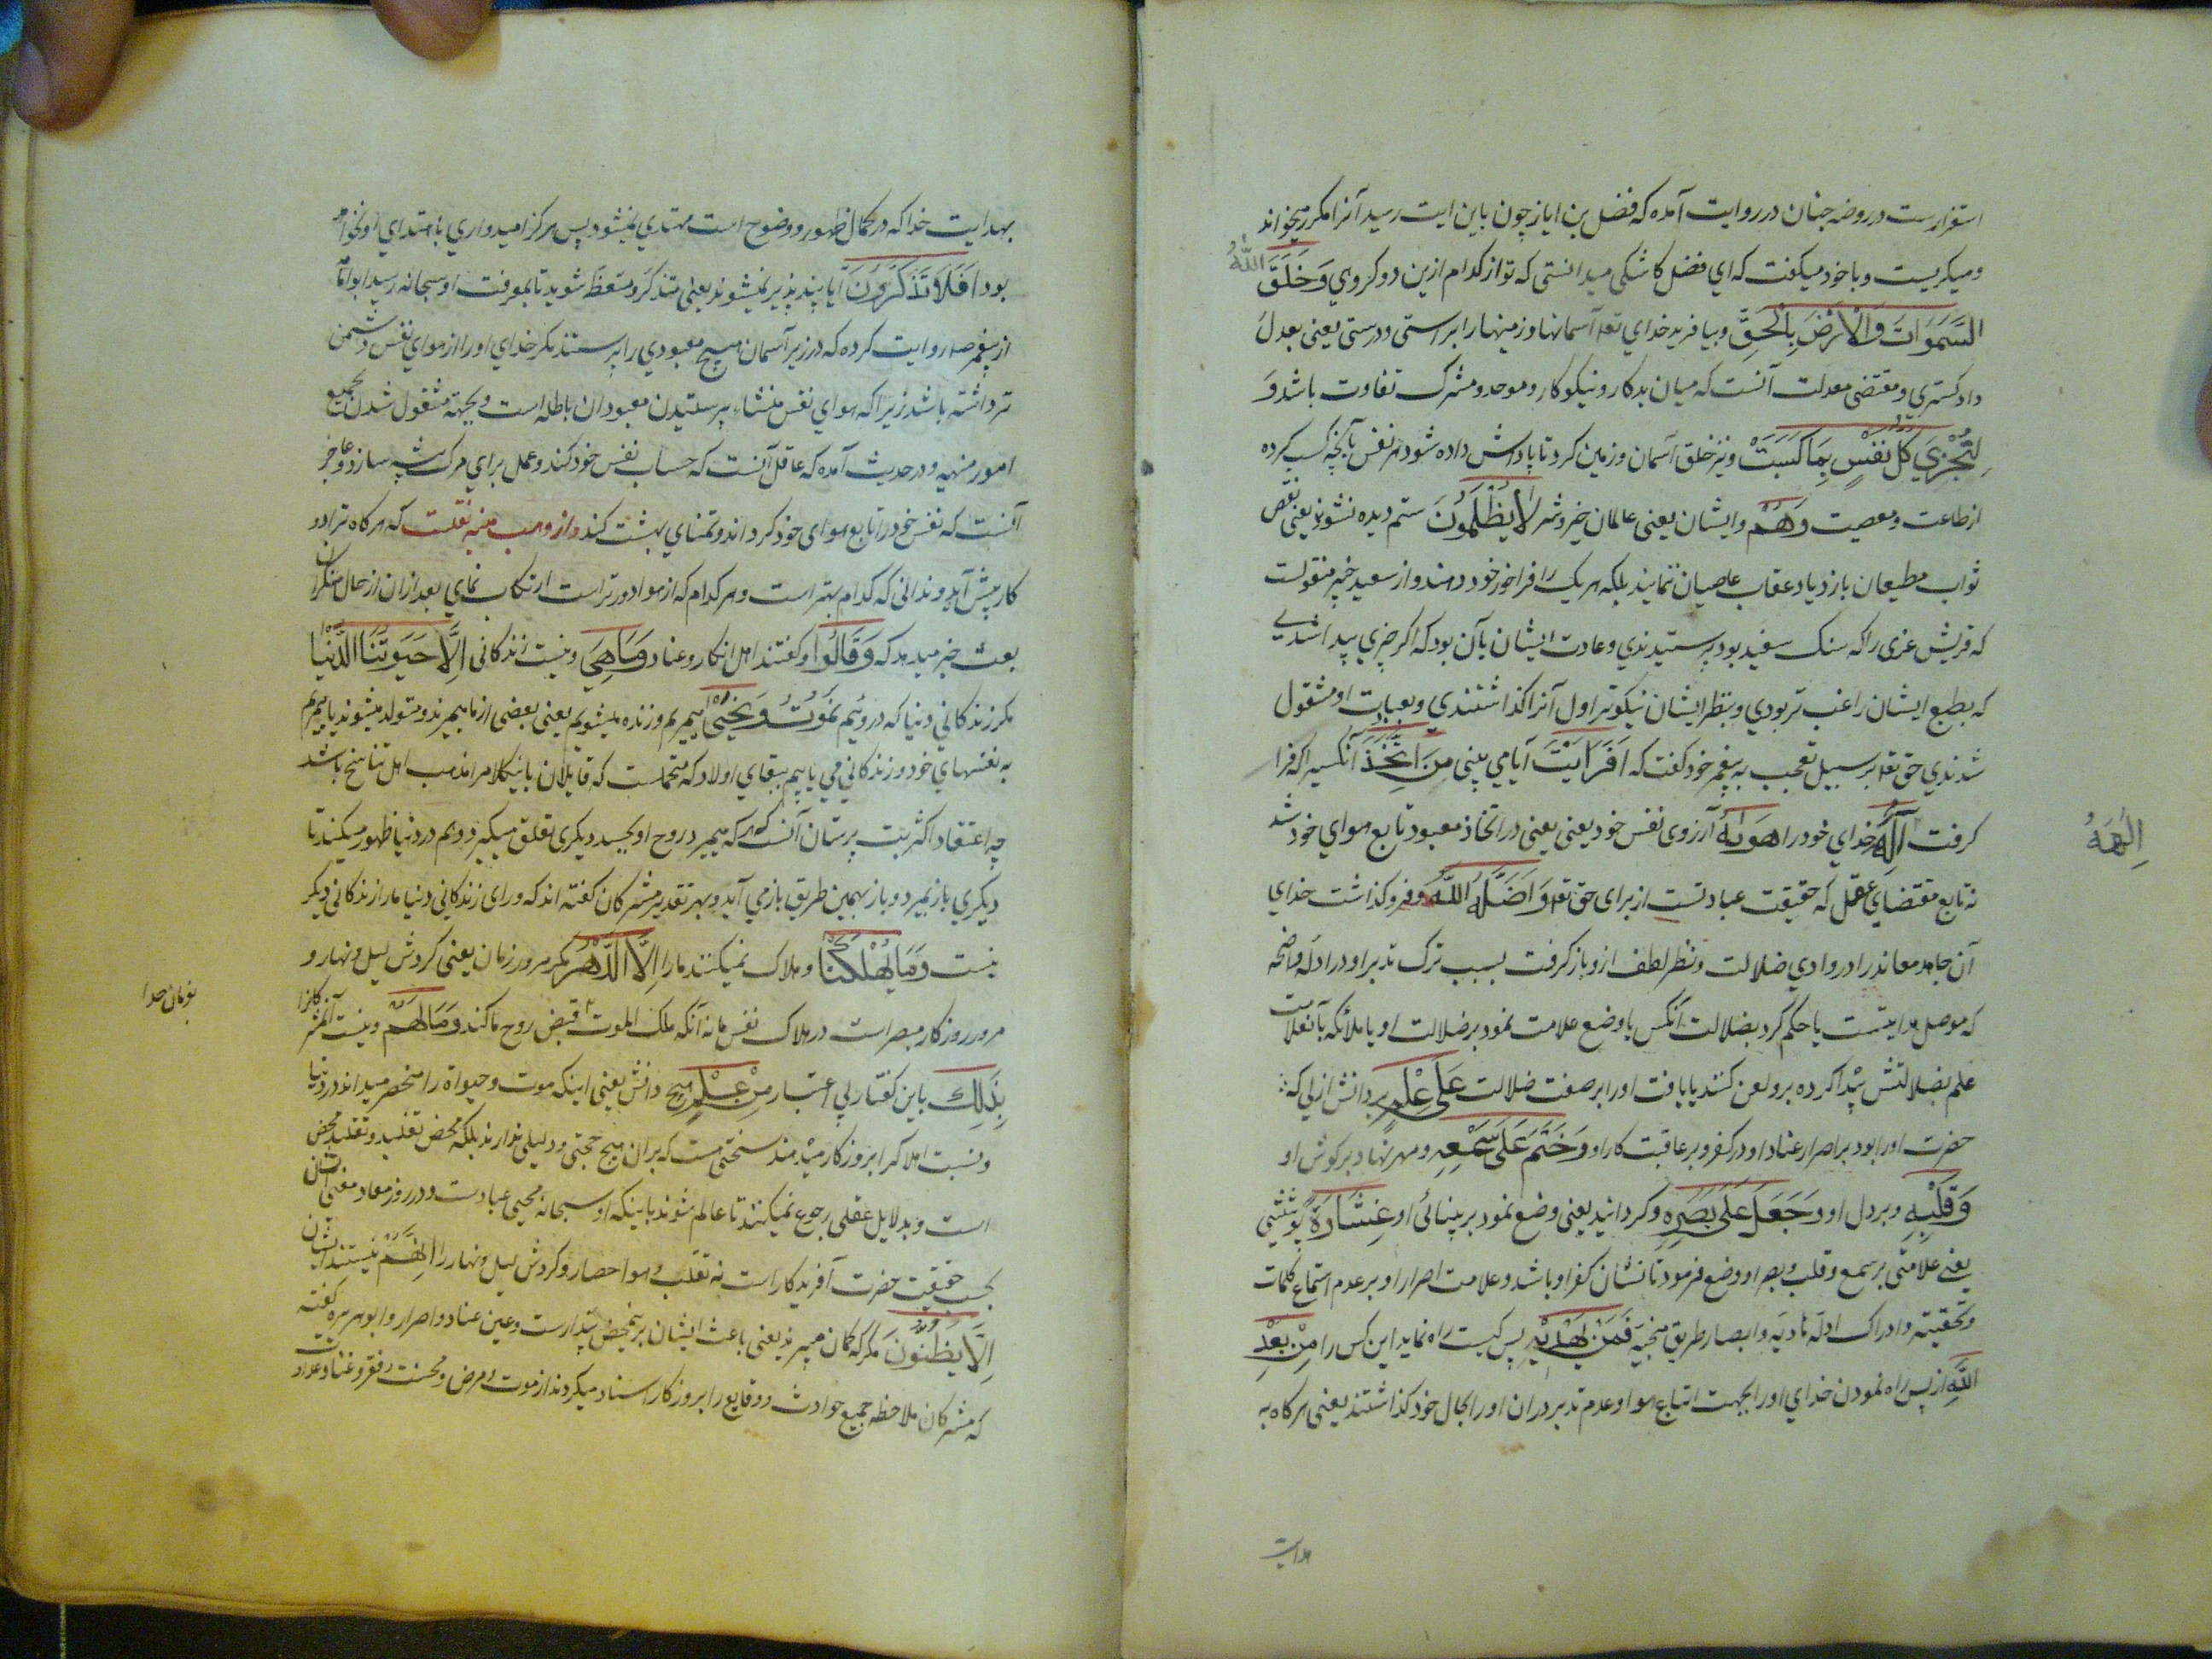 استفزارست در روضه جنان در روایت آمده که فضل بن ایاز چون باین ایت رسید آنرا مکرر میخواند
و میکریست و با خود میکفت که ای فضل کاشکی میدانستی که تو از کدام ازین دو کروهی وَخَلَقَ اللّٰهُ
السَّمَوَاتِ وَالْاَرْضَ بِالْحَقِّ و بیافرید خدای تعه آسمانها و زمینها را براستی و درستی یعنی بعدل
دادکستری و مقتضی معدلت آنست که میان بدکار و نیکوکار و موحد و مشرک تفاوت باشد وَ
لِتُجْزَى كُلُّ نَفْسٍ بِمَا كَسَبَتْ و نیز خلق آسمان و زمین کرد تا پاداش داده شود هر نفس بآنچه کسب کرده
از طاعت و معصیت وَهُمْ و ایشان یعنی عالمان خیر و شر لَا يُظْلَمُونَ ستم دیده نشوند یعنی نقص
ثواب مطیعان یا ازدیاد عقاب عاصیان ننمایند بلکه هر یک را فراخور خود دهند و از سعید خبیر منقولست
که قریش عزی را که سنک سفید بود پرستیدندی و عادت ایشان بآن بود که اکر چیزی پیدا شدی
که بطبع ایشان راغب تر بودی و بنظر ایشان نیکوتر اول آنرا کذاشتندی و بعبادت او مشغول
شدندی حق تعه بر سبیل تعجب به پیغمبر خود کفت که اَفَرَاَيْتَ آیا می بینی مَنِ اتَّخَذَ آنکسیرا که فرا
کرفت اِلٰهَهُ خدای خود را هَوٰيهُ آرزوی نفس خود یعنی در اتخاذ معبود تابع هوای خود شد
اِلٰهَهُ
نه تابع مقتضای عقل که حقیقت عبادتست از برای حق تعه وَاَضَلَّهُ اللّٰهُ و فرو کذاشت خدای
آن جاهد معاند را در وادی ضلالت و نظر لطف ازو باز کرفت بسبب ترک تدبر او در ادله واضحه
که موصل هدایتست یا حکم کرد بضلالت آنکس یا وضع علامت نمود بر ضلالت او یا ملائکه بآنعلامت
علم بضلالتش پیدا کرده برو لعن کنند یا یافت او را بر صفت ضلالت عَلٰى عِلْمٍ بر دانش ازلی که
حضرت او را بود بر اصرار عناد او در کفر و بر عاقبت کار او وَخَتَمَ عَلٰى سَمْعِهِ و مهر نهاد بر کوش او
وَقَلْبِهِ و بر دل او وَجَعَلَ عَلٰى بَصَرِهِ و کردانید یعنی وضع نمود بر بینائی او غِشَاوَةً پوششی
یعنی علامتی بر سمع و قلب و بصر او وضع فرمود تا نشان کفر او باشد و علامت اصرار او بر عدم استماع کلمات
و تحقیقیه و ادراک ادله هادیه و ابصار طریق منجیه فَمَنْ يَهْدِيهِ پس کیست راه نماید این کس را مِنْ بَعْدِ
اللّٰهِ از پس راه نمودن خدای او را بجهت اتباع هوا و عدم تدبر در ان او را بحال خود کذاشتند یعنی هرکاه به
هدایت
بهدایت خدا که در کمال ظهور و وضوح است مهتدی نمیشود پس هرکز امیدواری باهتدای او نخواهد
بود اَفَلَا تَذَكَّرُونَ آیا پند پذیر نمیشوند یعنی متذکر و متعظ شوید تا بمعرفت او سبحانه رسید ابوامامه
از پیغمبر صلعم روایت کرده که در زیر آسمان هیچ معبودی را نپرستند مکر خدای او را از هوای نفس دشمن
تر داشته باشد زیرا که هوای نفس منشاء پرستیدن معبودان باطله است و بجهته مشغول شدن بجمیع
امور منهیه و در حدیث آمده که عاقل آنست که حساب نفس خود کند و عمل برای مرک پیشه سازد و عاجز
آنست که نفس خود را تابع هوای خود کرداند و تمنای بهشت کند و از وهب منبه نقلست که هرکاه ترا دو
کار پیش آید و ندانی که کدام بهتر است و هر کدام که از هوا دورتر است ارتکاب نمای بعد از ان از حال منکران
بعث خبر میدهد که وَقَالُوا و کفتند اهل انکار و عناد مَا هِيَ و نیست زندکانی اِلَّا حَيٰوتُنَا الدُّنْيَا
مکر زندکانی دنیا که دروئیم نَمُوتُ وَنَحْيٰى میمیریم و زنده میشویم یعنی بعضی از ما میمیرند و متولد میشوند یا میمیریم
به نفسهای خود و زندکانی می یابیم ببقای اولاد که محتملست که قایلان باینکلام را مذهب اهل تناسخ باشد
چه اعتقاد اکثر بت پرستان آنست که هر که میمیرد روح او بجسد دیکری تعلق میکیرد و هم در دنیا ظهور میکند تا
دیکری باز بمیرد و باز بهمین طریق باز می آید و بهر تقدیر مشرکان کفته اند که ورای زندکانی دنیا مارا زندکانی دیکر
نیست وَمَا يُهْلِكُنَا و هلاک نمیکنند مارا اِلَّا الدَّهْرُ مکر مرور زمان یعنی کردش لیل و نهار و
مرور روزکار مبصر است در هلاک نفس ما نه آنکه ملک الموت قبض روح ما کند وَمَا لَهُمْ و نیست آنمشرکانرا
بِذٰلِكَ باین کفتار بی اعتبار مِنْ عِلْمٍ هیچ دانش یعنی اینکه موت و حیواة را منحصر میدانند در دنیا
و نسبت اهلاک را بروزکار میدهند سخنی است که بران هیچ حجتی و دلیلی ندارند بلکه محض تقلید و تقلید محض
است و بدلایل عقلی رجوع نمیکنند تا عالم شوند باینکه او سبحانه محیی عبادست و در روز معاد مفنی ایشان
بحسب حقیقت حضرت آفریدکار است نه تقلب هوا حصار و کردش لیل و نهار را اِنْ هُمْ نیستند ایشان
اِلَّا يَظُنُّونَ مکر که کمان میبرند یعنی باعث ایشان برین محض پندارست و عین عناد و اصرار و ابوهریره کفته
که مشرکان ملاحظه جمیع حوادث و وقایع را بروزکار اسناد میکردند از موت و مرض و محنت و فقر و غنا و عداوت